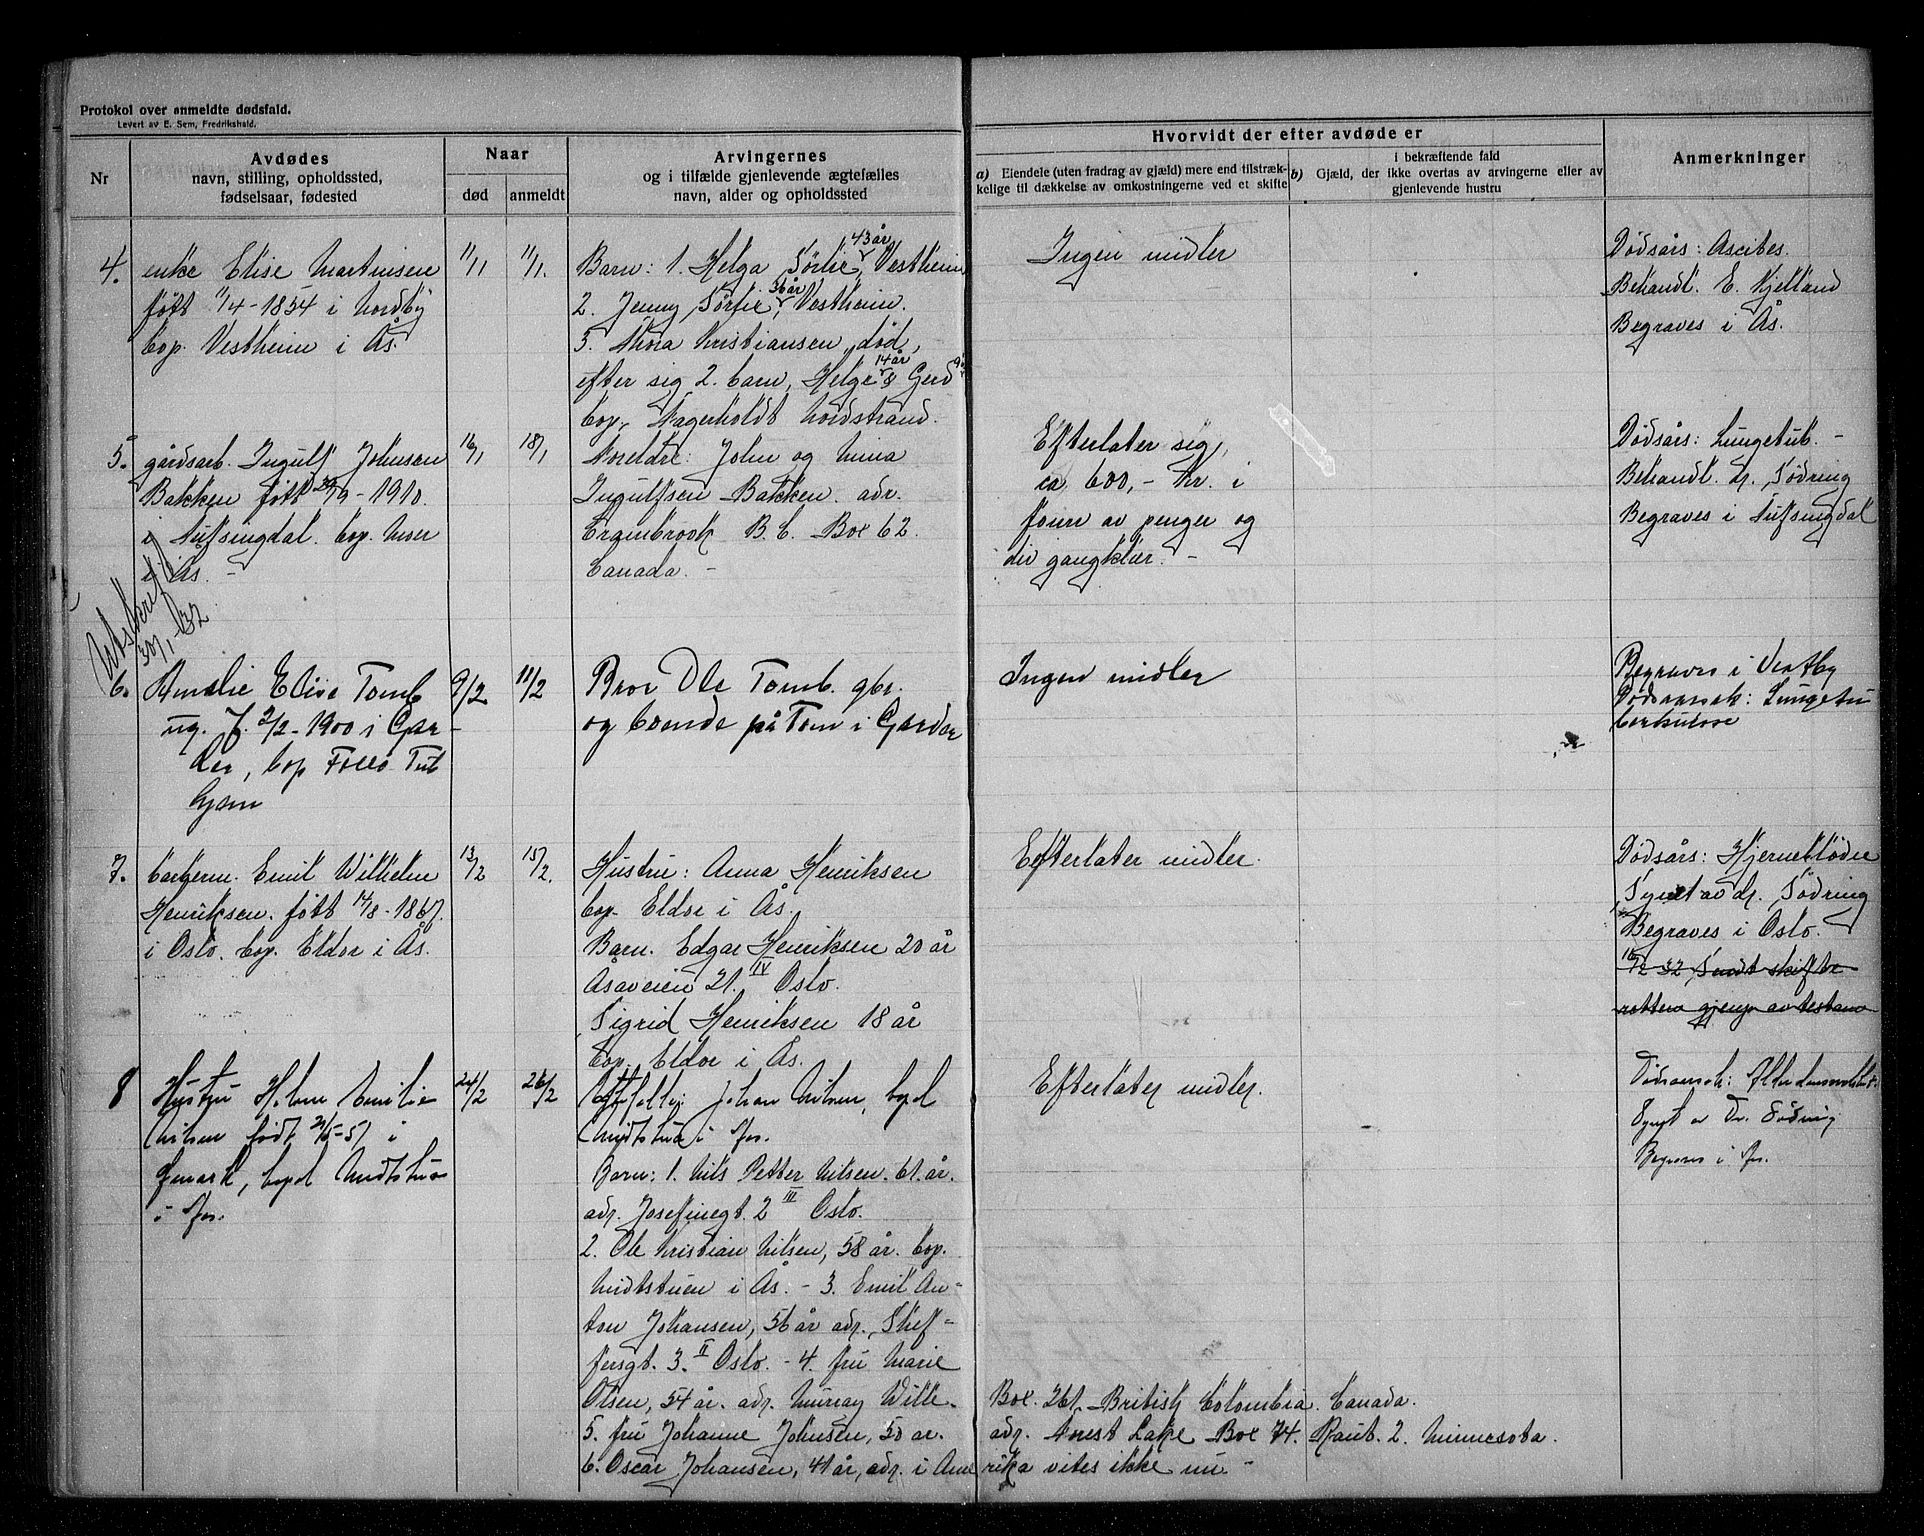 Protokol over anmeldte dødsfald.
Levert av E. Sem, Fredrikshald.
Nr
Avdødes
navn, stilling, opholdssted,
fødselsaar, fødested
Naar
død
anmeldt
Arvingernes
og i tilfælde gjenlevende ægtefælles
navn, alder og opholdssted
Hvorvidt der efter avdøde er
a) Eiendele (uten fradrag av gjæld) mere end tilstræk-
kelige til dækkelse av omkostningerne ved et skifte
b)
i bekræftende fald
Gjæld, der ikke overtas av arvingerne eller av
gjenlevende hustru
Anmerkninger
4.
enke Elise Martinsen
født 11/4 - 1854 i Nordby
bop. Vestheim i Ås.
11/1
11/1.
Barn: 1. Helga Sørlie, 43 år Vestheim
2. Jenny Sørlie, 36 år Vestheim.
3. Thora Kristiansen, død,
efter sig 2. barn, Helge 14 år & Gerd
bop. Nordstrand.
Ingen midler
Dødsårs: Ascites.
Behandl. E. Kjelland
Begraves i Ås.
5.
gårdsarb. Ingulf Johnsen
Bakken født - 1910.
i bop. Moer
i Ås. -
16/1
18/1
Foreldre: John og Mina
Ingulfsen Bakken. adr.
B. C. Box 62.
Canada. -
Efterlater sig,
ca 600,- kr. i
form av penger og
div gangklær. -
Dødsårs: Lungetub. -
Behandl. dr. Sødring
Begraves i
Utskrift
30/1 - 32
6.
Amalie Elise Tomb
ug. f. 2/2 - 1900 i Gar-
der, bop Follo Tub
hjem
9/2
11/2
Bror Ole Tomb. gbr.
og boende på Tom i Garder
Ingen midler
Begraves i Vestby
Dødsaarsak: Lungetu
berkulose
7.
barberm. Emil Wilhelm
Henriksen. født 14/8 - 1867.
i Oslo. bop. Eldor i Ås.
13/2
15/2.
Hustru: Anna Henriksen
bop. Eldor i Ås.
Barn. Edgar Henriksen 20 år
Åsaveien 21. IV Oslo.
Sigrid Henriksen 18 år
bop. Eldor i Ås.
Efterlater midler.
Dødsårs: Hjerneblødn
Synet av dr. Sødring
Begraves i Oslo.
32 Sendt skifte
retten gjenp av testam
8
Hustru Helene Emilie
Nilsen født i
bopel Midtstua
i Ås.
24/2
26/2
Ektefelle: Johan Nilsen, bopel
Midtstua i Ås.
Barn: 1. Nils Petter Nilsen. 61. år.
adr. Josefinegt. 2 III Oslo.
2. Ole Kristian Nilsen, 58 år. bop.
Midtstuen i Ås. - 3. Emil An-
ton Johansen, 56 år adr.
3. II Oslo. - 4. fru Marie
Olsen, 54 år. adr. Murray Wille. Box. 261. British Colombia. Canada.
5. fru Johanne Johnsen, 50 år. adr. Forest Lake Box 74. Raut. 2. Minnesota.
6. Oscar Johansen, 41 år, adr. i Amerika vites ikke nu -
Efterlater midler.
Dødsaarsak: Alderdomssvakhet
Synet av Dr. Sødring
Begraves i Ås.